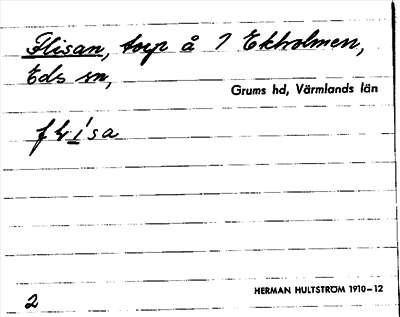 Flisan, torp å 7 Ekholmen,
Eds sn,
Grums hd, Värmlands län
HERMAN HULTSTRÖM 1910-12
2